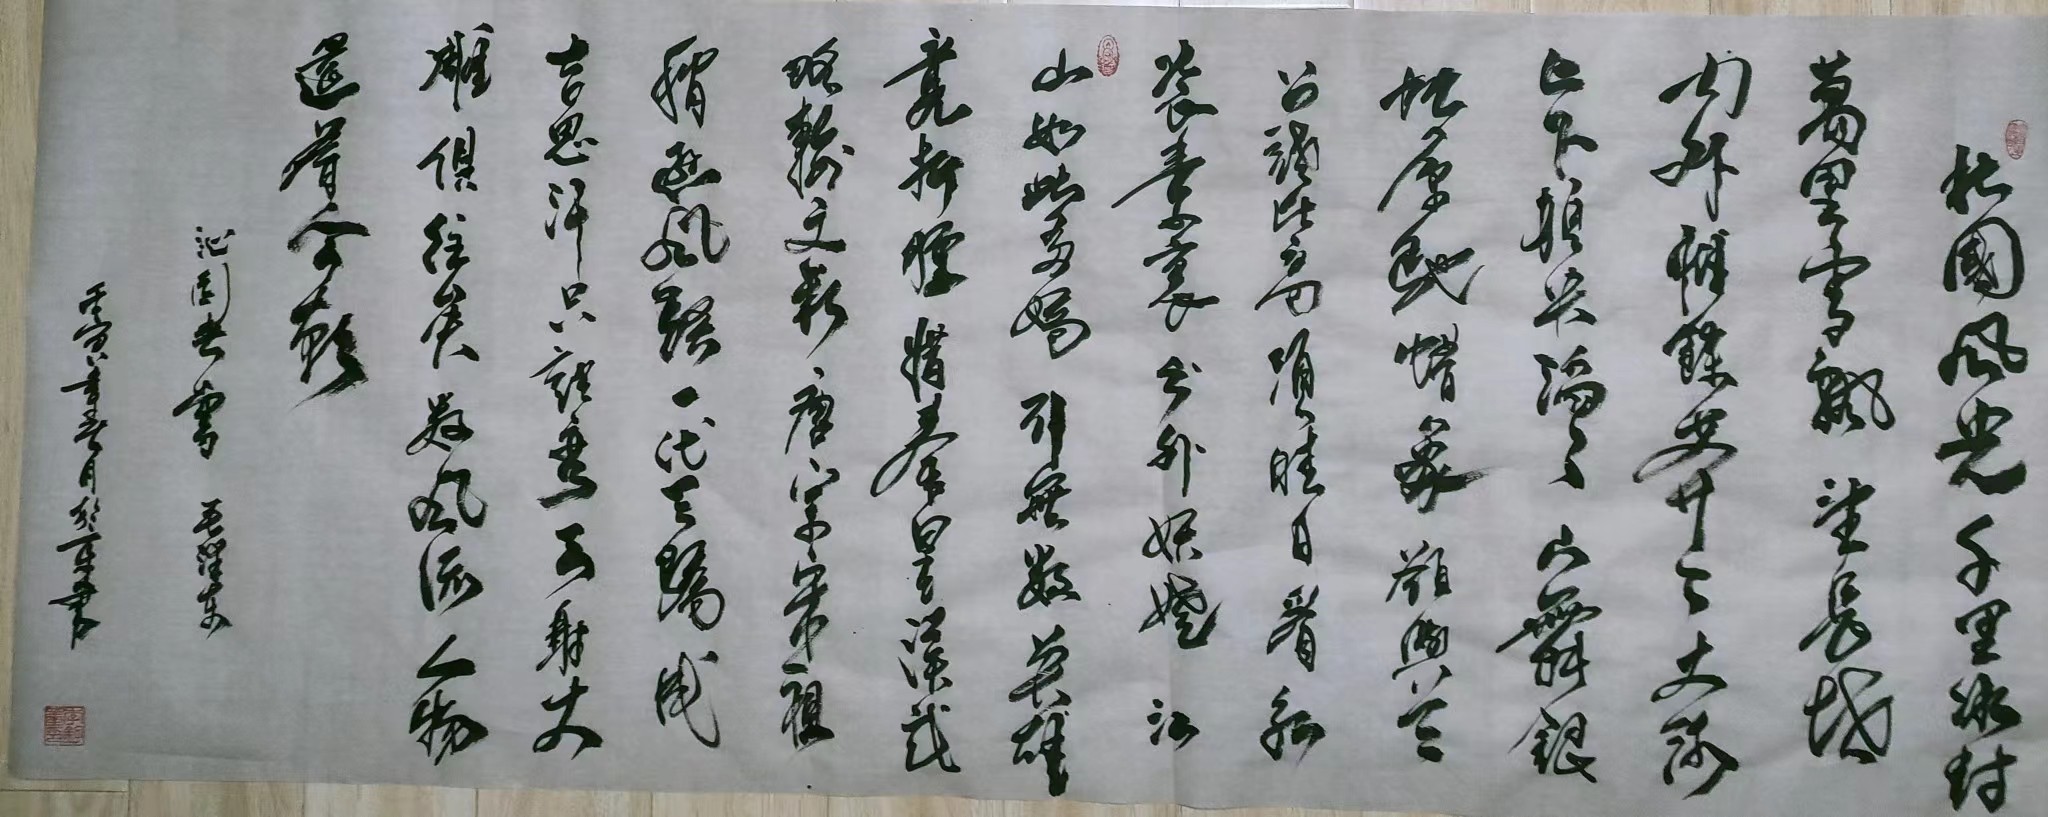 北國風光千里冰封
萬里雪飄望長城
内外惟餘莽莽大河
上下頓失滔滔山舞銀
蛇原馳蠟象欲與天
公試比高須晴日看紅
裝素裹分外妖嬈江
山如此多嬌引無數英雄
競折腰惜秦皇漢武
略輸文彩唐宗宋祖
稍遜風騷一代天驕成
吉思汗只識彎弓射大
雕俱往矣數風流人物
還看今朝
沁園春雪毛澤東
壬寅年春月於書